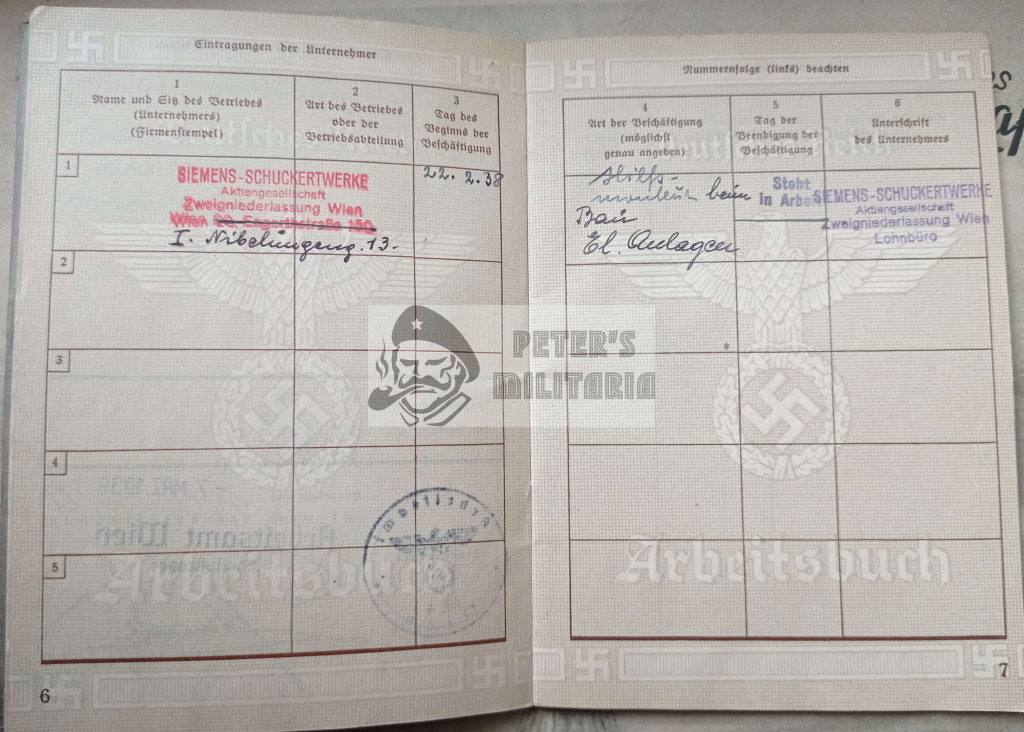 Eintragungen der Unternehmer
1
Name und Sitz des Betriebes
(Unternehmers)
(Firmenstempel)
2
Art des Betriebes
oder der
Betriebsabteilung
3
Tag des
Beginns der
Beschäftigung
1
SIEMENS-SCHUCKERTWERKE
Aktiengesellschaft
Zweigniederlassung Wien
Wien 20, Engerthstraße 150
I. Nibelungeng. 13.
22. 2. 38
2
3
4
5
6
Nummernfolge (links) beachten
4
Art der Beschäftigung
(möglichst
genau angeben)
5
Tag der
Beendigung der
Beschäftigung
6
Unterschrift
des Unternehmers
Hilfs-
monteur beim
Bau
El. Anlagen
Steht
in Arbeit
SIEMENS-SCHUCKERTWERKE
Aktiengesellschaft
Zweigniederlassung Wien
Lohnbüro
7
PETER'S
MILITARIA
Arbeitsbuch
Arbeitsbuch
7. MRZ. 1939
Arbeitsamt Wien